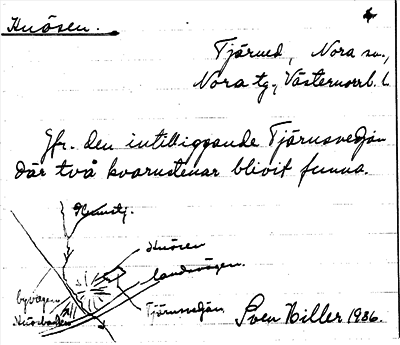 Knösen.
Tjärned, Nora sn.,
Nora tg., Västernorrl. l.
Jfr. den intilliggande Tjärnsvedjan
där två kvarnstenar blivit funna.
Knösen
landsvägen.
byvägen
Tjärnsvedjan
Sven Hiller 1936.